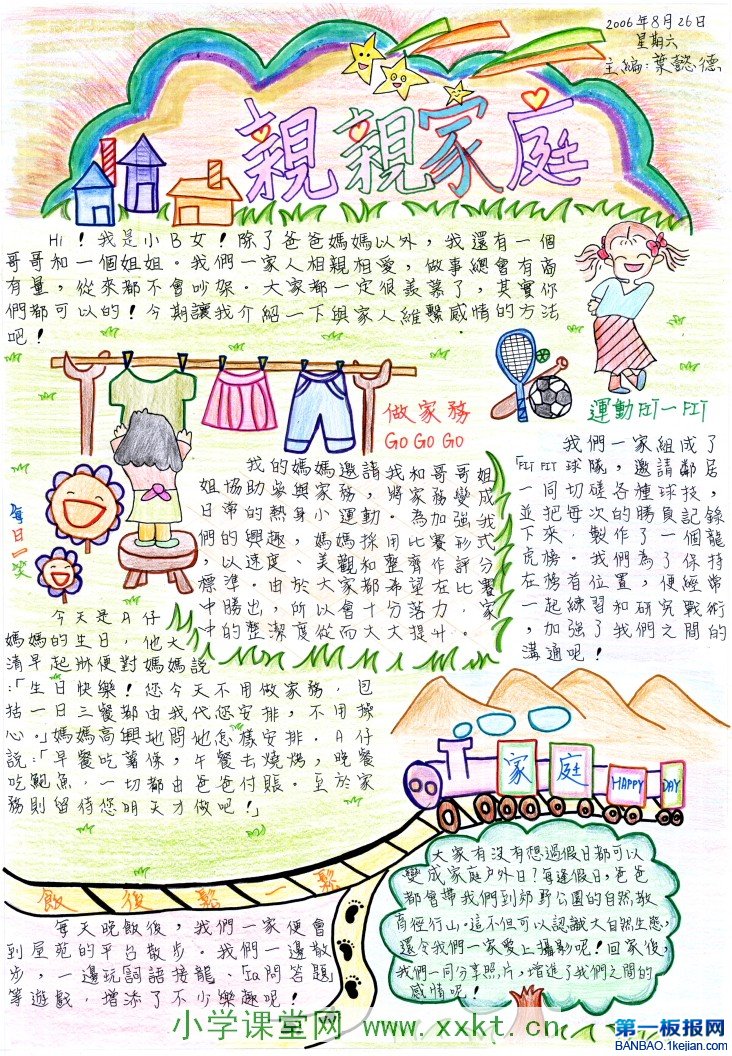 2006年8月26日
星期六
主編:葉懿德
親親家庭
Hi!我是小B女!除了爸爸媽媽以外,我還有一個
哥哥和一個姐姐。我們一家人相親相愛,做事總會有商
有量,從來都不會吵架。大家都一定很羨慕了,其實你
們都可以的!今期讓我介紹一下與家人維繫感情的方法
吧!
做家務
GO GO GO
我的媽媽邀請我和哥哥姐
姐協助參與家務,將家務變成
日常的熱身小運動。為加強我
們的興趣,媽媽採用比賽形式
,以速度、美觀和整齊作評分
標準。由於大家都希望在比賽
中勝出,所以會十分落力,家
中的整潔度從而大大提升。
運動FIT一FIT
我們一家組成了
「FIT FIT球隊,邀請鄰居
一同切磋各種球技,
並把每次的勝負記錄
下來,製作了一個龍
虎榜。我們為了保持
在榜首位置,便經常
一起練習和研究戰術
,加強了我們之間的
溝通呢!
每日一笑
今天是A仔
媽媽的生日,他大
清早起床便對媽媽說
:「生日快樂!您今天不用做家務,包
括一日三餐都由我代您安排,不用操
心。」媽媽高興地問他怎樣安排,A仔
說:「早餐吃薯條,午餐去燒烤,晚餐
吃鮑魚,一切都由爸爸付賬。至於家
務則留待您明天才做吧!」
家庭 HAPPY DAY
飯後鬆一鬆
每天晚飯後,我們一家便會
到屋苑的平台散步。我們一邊散
步,一邊玩詞語接龍、IQ問答題
等遊戲,增添了不少樂趣呢!
大家有沒有想過假日都可以
變成家庭戶外日?每逢假日,爸爸
都會帶我們到郊野公園的自然教
育徑行山。這不但可以認識大自然生態,
還令我們一家愛上攝影呢!回家後,
我們一同分享照片,增進了我們之間的
感情呢!
小学课堂网 www.xxkt.cn
第一板报网
BANBAO.1kejian.com